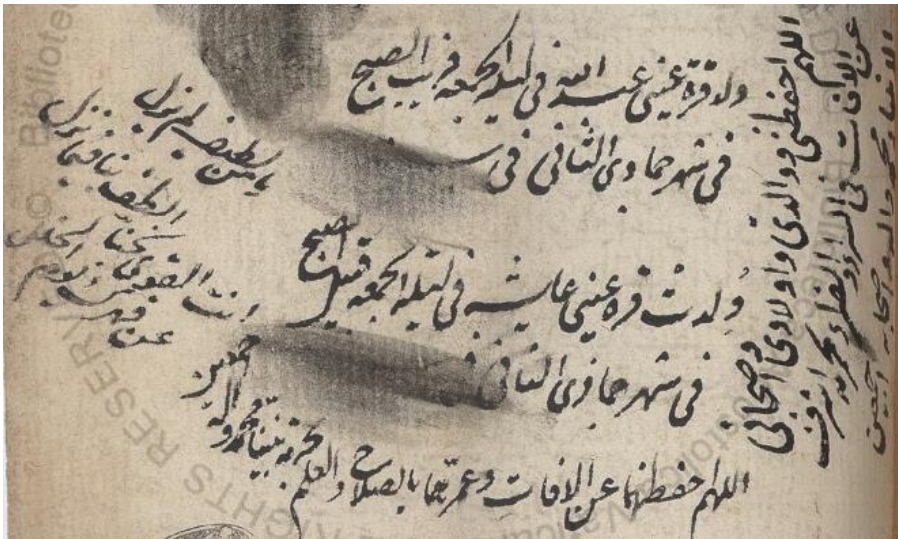 ولد قرة عيني عبد الله في ليلة الجمعة قريب الصبح
في شهر جمادى الثاني في
ولدت قرة عيني عايشه في ليلة الجمعة قبيل الصبح
في شهر جمادى الثاني
اللهم احفظهما عن الافات وعمرهما بالصلاح والعلم بحرمة نبينا محمد وآله اجمعين
يا من لطيف لم يزل
الطف بنا فيما نزل
انت القوي نجنا
عن قهرك يوم الخلل
اللهم احفظني ووالدي واولادي واصحابي
عن الافات في السر بحرمة اشرف
الانبياء محمد واله واصحابه اجمعين